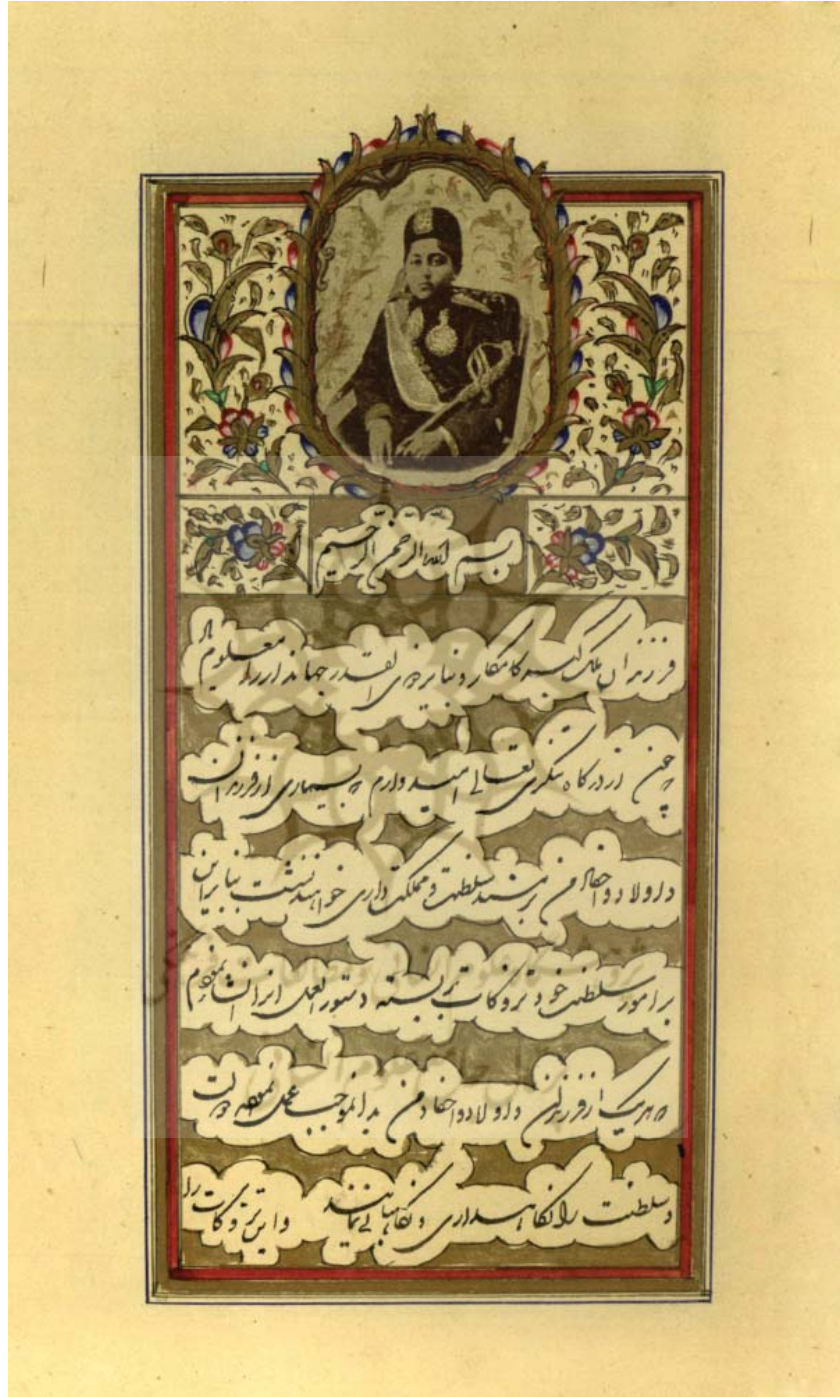 بسم الله الرحمن الرحیم
فرزندان ملک گیر کامکار و نبایر ذی القدر جهاندار را معلوم باد
چون از درگاه تنگری تعالی امیدوارم که بسیاری از فرزندان
و اولاد و احفاد من بر مسند سلطنت و مملکت داری خواهند نشست بنابراین
بر امور سلطنت خود تزوکات بر بسته دستور العمل ایرانشان نمودم
که هر یک از فرزندان و اولاد و احفاد من بدانموجب عمل نموده دولت
و سلطنت را نگاهداری و نگاهبانی نمایند و این تزوکات را